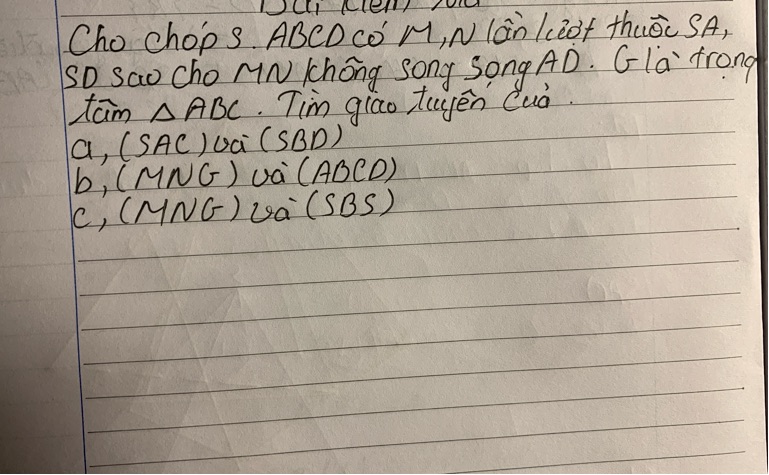 Cho chóp S.ABCD có M,N lần lượt thuộc SA,
SD sao cho MN không song song AD. G là trọng
tâm △ABC. Tìm giao tuyến của.
a, (SAC) và (SBD)
b, (MNG) và (ABCD)
c, (MNG) và (SBS)